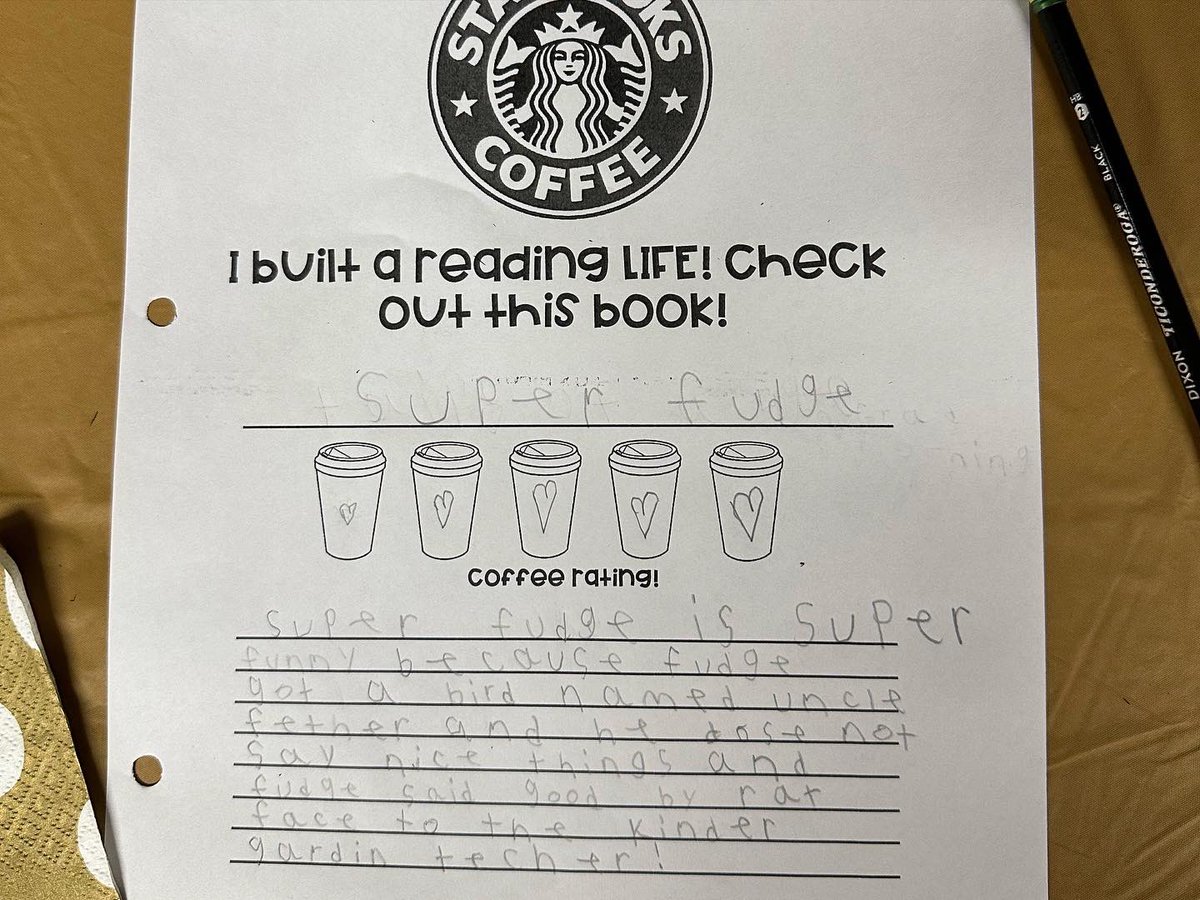 STARBUCKS
COFFEE
I built a reading LIFE! Check
out this book!
Super fudge
Coffee rating!
super fudge is super
funny because fudge
got a bird named uncle
fether and he dose not
say nice things and
fudge said good by rat
face to the kinder
gardin techer!
DIXON TICONDEROGA® BLACK 2 HB